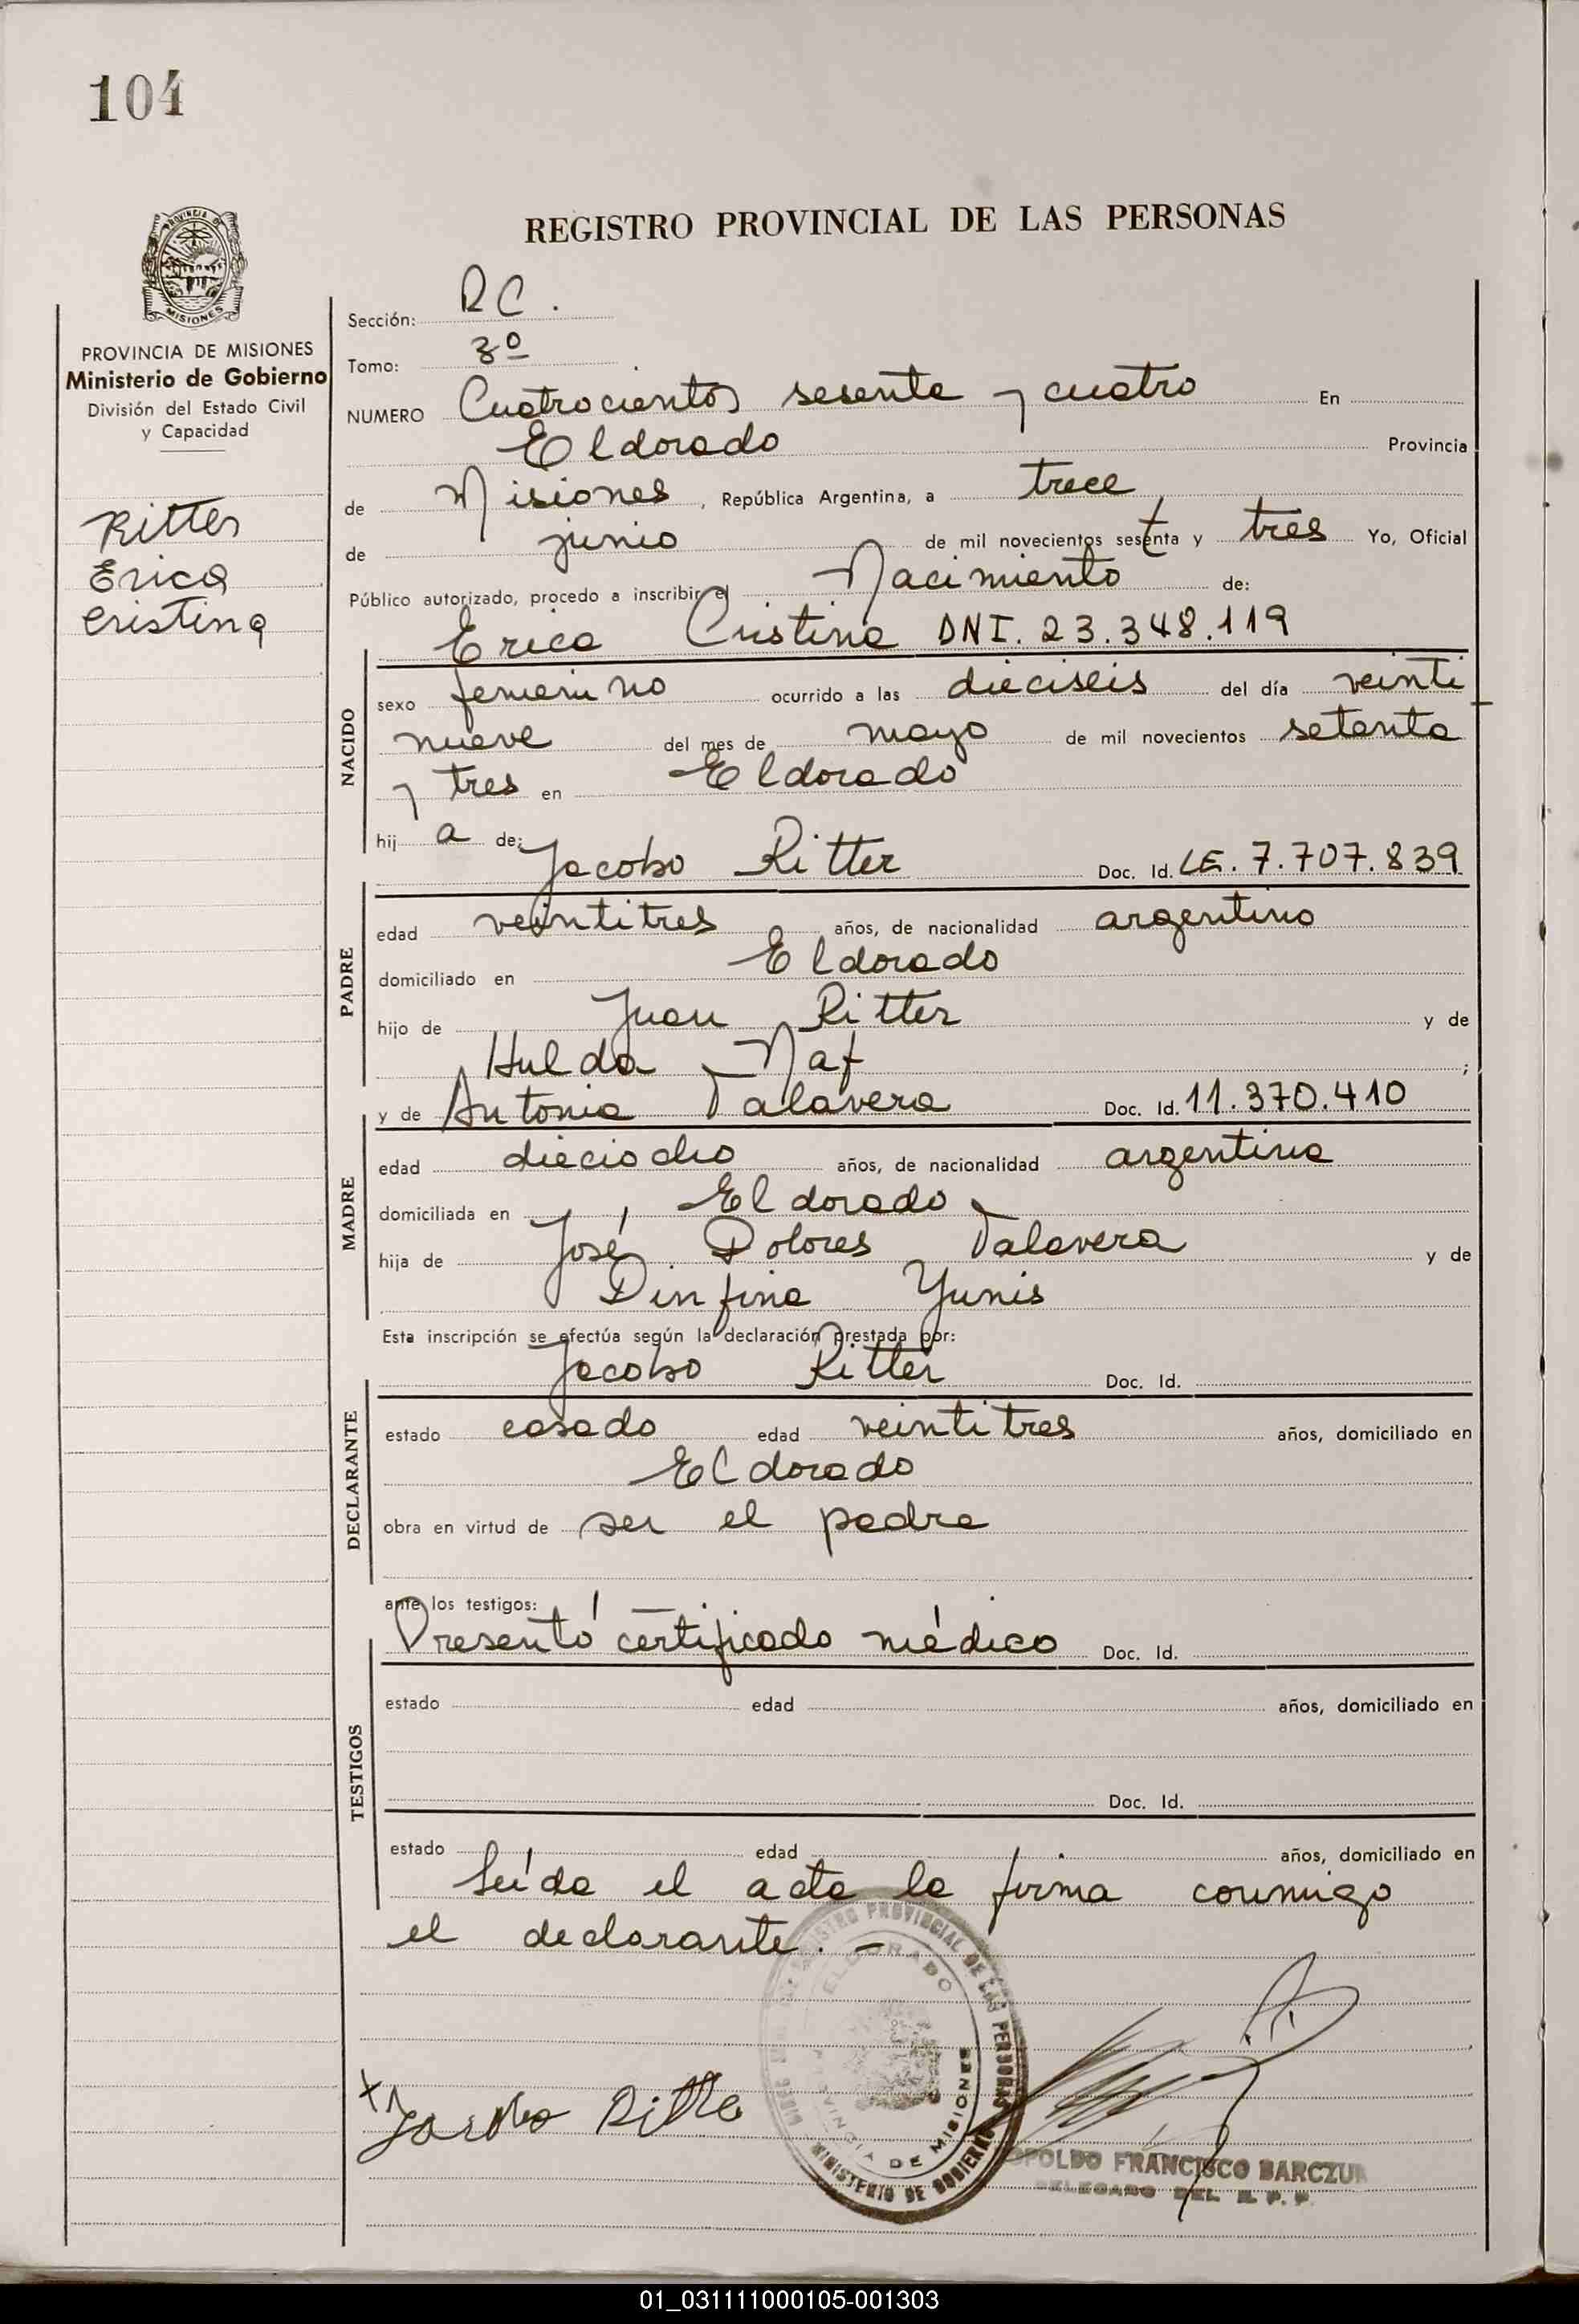 104
REGISTRO PROVINCIAL DE LAS PERSONAS
PROVINCIA DE MISIONES
Ministerio de Gobierno
División del Estado Civil
y Capacidad
Ritter
Erica
Cristina
Sección: RC.
Tomo: 3º
NUMERO Cuatrocientos sesenta y cuatro En
Eldorado Provincia
de Misiones, República Argentina, a trece
de junio de mil novecientos setenta y tres Yo, Oficial
Público autorizado, procedo a inscribir el Nacimiento de:
Erica Cristina DNI. 23.348.119
NACIDO
sexo femenino ocurrido a las dieciseis del día veinti
nueve del mes de mayo de mil novecientos setenta
y tres en Eldorado
hij a de: Jacobo Ritter Doc. Id. LE. 7.707.839
PADRE
edad veintitres años, de nacionalidad argentino
domiciliado en Eldorado
hijo de Juan Ritter y de
Hulda Naf ;
y de Antonia Talavera Doc. Id. 11.370.410
MADRE
edad dieciocho años, de nacionalidad argentina
domiciliada en Eldorado
hija de José Dolores Talavera y de
Dinfina Yunis
Esta inscripción se efectúa según la declaración prestada por:
Jacobo Ritter Doc. Id.
DECLARANTE
estado casado edad veintitres años, domiciliado en
Eldorado
obra en virtud de ser el padre
ante los testigos:
Presentó certificado médico Doc. Id.
TESTIGOS
estado edad años, domiciliado en
Doc. Id.
estado edad años, domiciliado en
Leída el acta la firma conmigo
el declarante. -
REGISTRO PROVINCIAL DE LAS PERSONAS
ELDORADO
PROVINCIA DE MISIONES
MINISTERIO DE GOBIERNO
x Jacobo Ritter
OPOLDO FRANCISCO BARCZUK
DELEGADO DEL R. P. P.
01_031111000105-001303